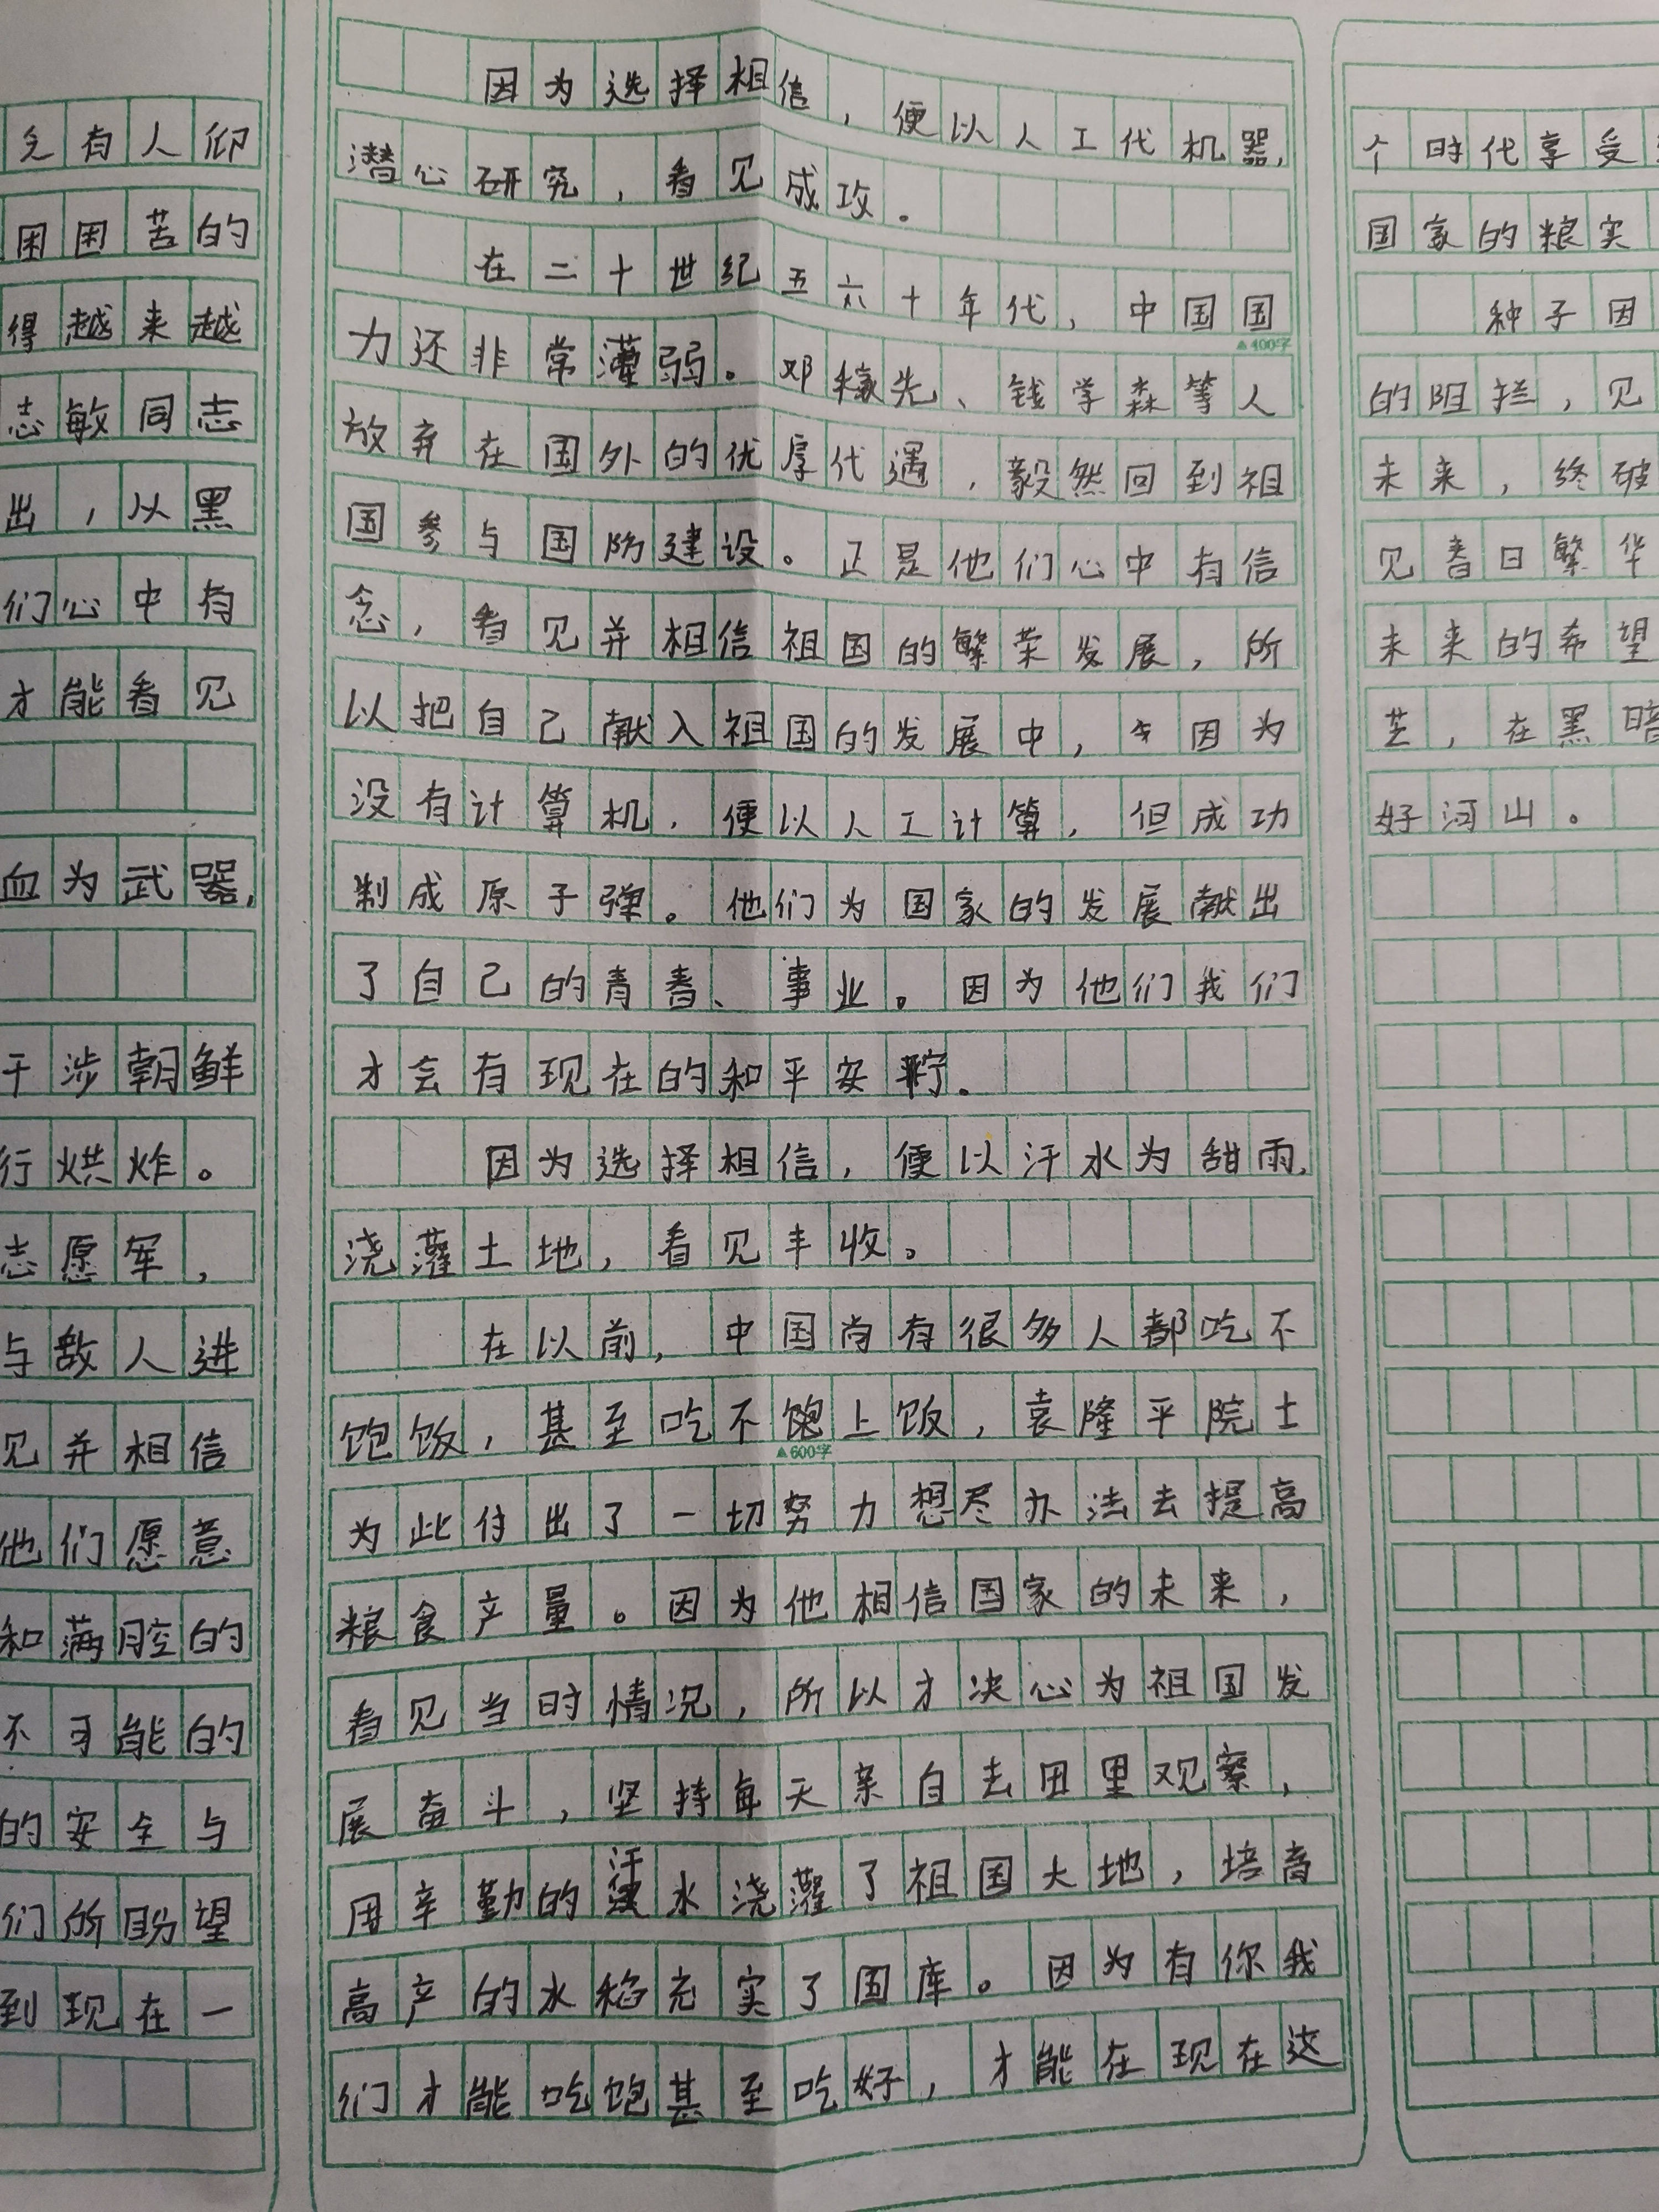 乞有人仰
困困苦的
得越来越
志敏同志
出，以黑
们心中有
才能看见
血为武器，
干涉朝鲜
行烘炸。
志愿军，
与敌人进
见并相信
他们愿意
和满腔的
不可能的
的安全与
们所盼望
到现在一
因为选择相信，便以人工代机器，
潜心研究，看见成攻。
在二十世纪五六十年代，中国国
▲400字
力还非常薄弱。邓稼先、钱学森等人
放弃在国外的优厚代遇，毅然回到祖
国参与国防建设。正是他们心中有信
念，看见并相信祖国的繁荣发展，所
以把自己献入祖国的发展中，因为
没有计算机，便以人工计算，但成功
制成原子弹。他们为国家的发展献出
了自己的青春、事业。因为他们我们
才会有现在的和平安宁。
因为选择相信，便以汗水为甜雨，
浇灌土地，看见丰收。
在以前，中国尚有很多人都吃不
饱饭，甚至吃不上饭，袁隆平院士
▲600字
为此付出了一切努力想尽办法去提高
粮食产量。因为他相信国家的未来，
看见当时情况，所以才决心为祖国发
展奋斗，坚持每天亲自去田里观察，
用辛勤的汗水浇灌了祖国大地，培育
高产的水稻充实了国库。因为有你我
们才能吃饱甚至吃好，才能在现在这
个时代享受
国家的粮实
种子因
的阻拦，见
未来，终破
见春日繁华
未来的希望
芒，在黑暗
好河山。